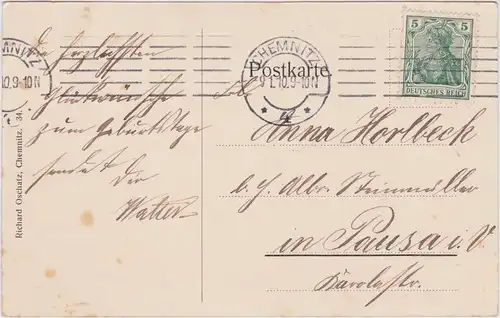 Die herzlichsten
Glückwünsche
zum Geburtstage
sendet Dir
Walter
Richard Oschatz, Chemnitz. 34.
CHEMNITZ
9 1.10.9-10N
* 4 *
Postkarte
5 5
DEUTSCHES REICH
Anna Horlbeck
b. H. Albr. Steinmüller
in Pausa i. V.
Carolastr.